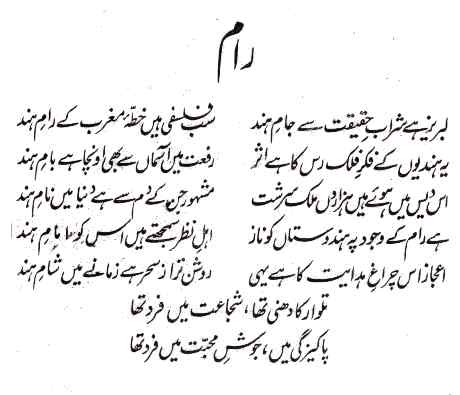 رام
لبریز ہے شراب حقیقت سے جام ہند سب فلسفی ہیں خطۂ مغرب کے رام ہند
یہ ہندیوں کے فکر فلک رس کا ہے اثر رفعت میں آسماں سے بھی اونچا ہے بام ہند
اس دیس میں ہوئے ہیں ہزاروں ملک سرشت مشہور جن کے دم سے ہے دنیا میں نام ہند
ہے رام کے وجود پہ ہندوستاں کو ناز اہل نظر سمجھتے ہیں اس کو امام ہند
اعجاز اس چراغ ہدایت کا ہے یہی روشن تر از سحر ہے زمانے میں شام ہند
تلوار کا دھنی تھا، شجاعت میں فرد تھا
پاکیزگی میں، جوش محبت میں فرد تھا